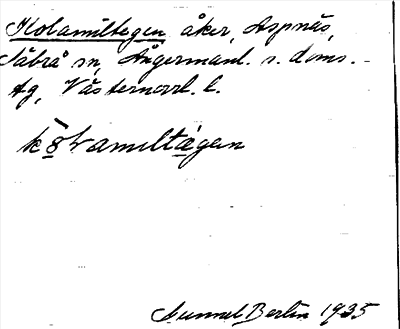 Kolamiltegen åker, Aspnäs,
Säbrå sn, Ångermanl. s. doms.-
tg, Västernorrl. l.
kolamiltägen
Gunnel Bertin 1935